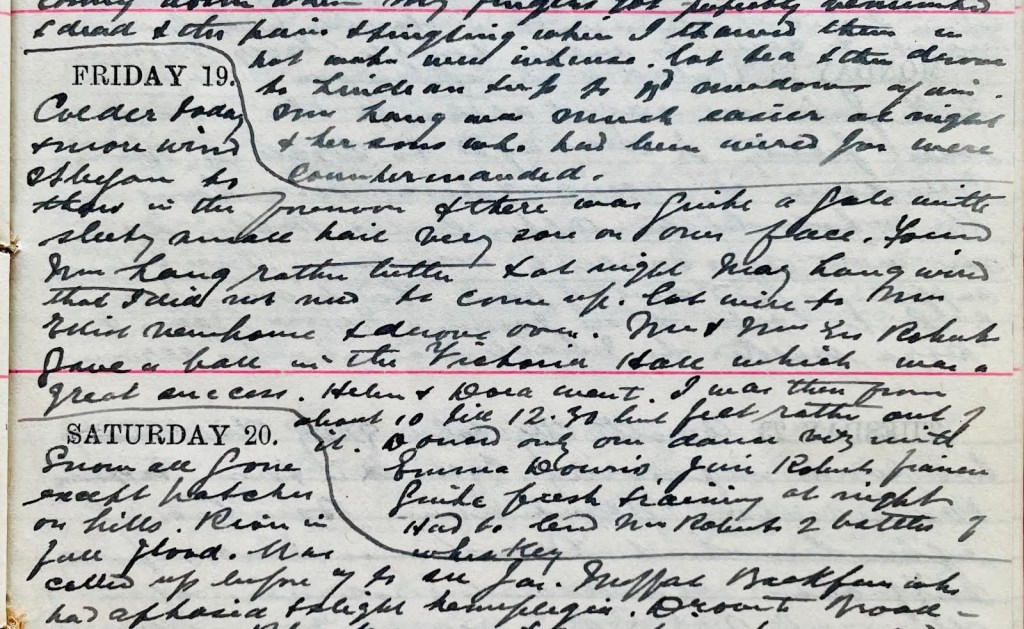 coming down when my fingers got perfectly benumbed
& dead & the pain & tingling when I thawed them in
hot water were intense. Got tea & then drove
to Lindean & up to meadows again.
Mrs Lang was much easier at night
& her sons who had been wired for were
countermanded.
FRIDAY 19.
Colder today
& more wind
It began to
thaw in the forenoon & there was quite a gale with
sleety small hail very sore on ones face. Found
Mrs Lang rather better & at night May Lang wired
that I did not need to come up. Got wire to Mrs
Elliot Newhouse & drove over. Mr & Mrs Roberts
gave a ball in the Victoria Hall which was a
great success. Helen & Dora went. I was there from
about 10 till 12.30 but felt rather out of
it. Danced only one dance viz with
Emma Downs. Jim Roberts
Quite fresh & raining at night
Had to lend Mrs Roberts 2 bottles of
whiskey
SATURDAY 20.
Snow all gone
except patches
on hills. River in
full flood. Was
called up before 7 to see Jas. Moffat who
had aphasia & slight hemiplegia. Drove to Broad-